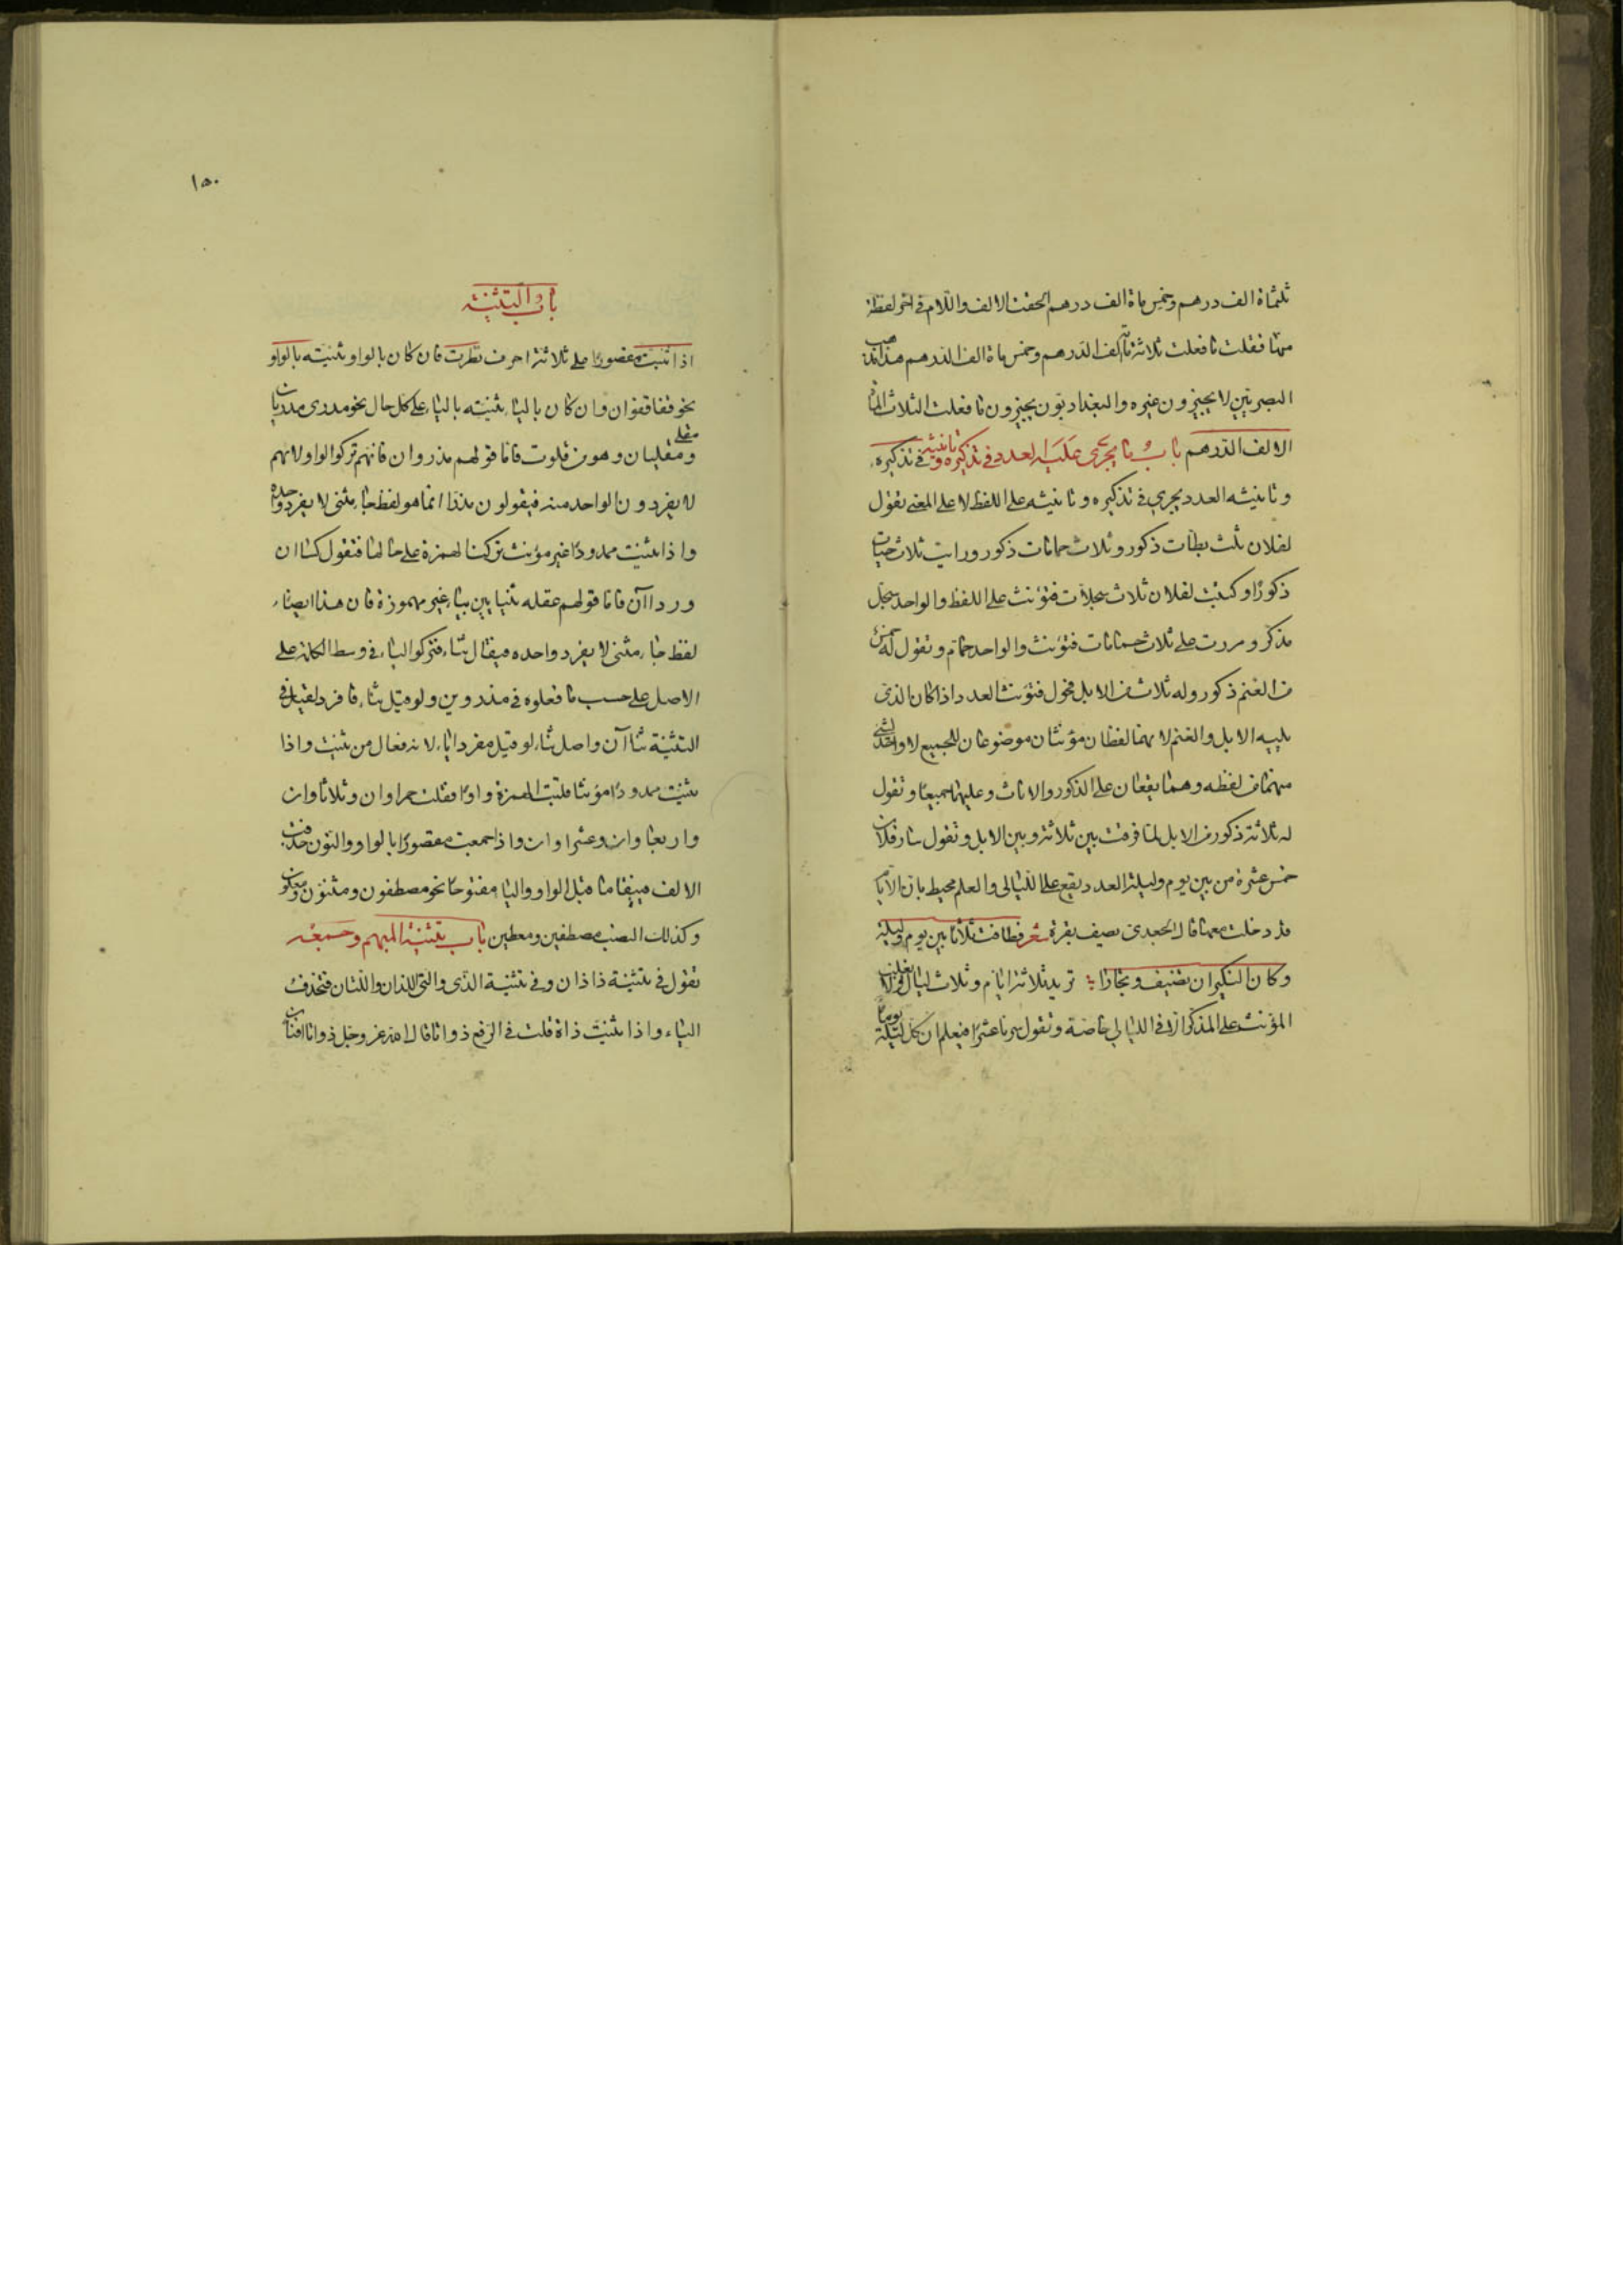 ثلثماة الف درهم وخمس ماة الف درهم الحقت الالف واللام في اخر لفظة
منها فقلت ما فعلت ثلاثماة الف الدرهم وخمس ماة الف الدرهم هذا مذهب
البصريين لا يجيزون غيره والبغداديون يجيزون ما فعلت الثلاث الماة
الالف الدرهم باب ما يجري عليه العدد في تذكيره وتانيثه في تذكيره
وتانيثه العدد يجري في تذكيره وتانيثه على اللفظ لا على المعنى تقول
لفلان ثلث بطات ذكور وثلاث حمامات ذكور ورايت ثلاث حيات
ذكورًا وكتبت لفلان ثلاث سجلات فتؤنث على اللفظ والواحد سجل
مذكر ومررت على ثلاث حمامات فتؤنث والواحد حمام وتقول له خمس
من الغنم ذكور وله ثلاث من الابل فحول فتؤنث العدد اذا كان الذي
يليه الابل والغنم لانهما لفظان مؤنثان موضوعان للجميع لا واحد لشئ
منهما من لفظه وهما يقعان على الذكور والاناث وعليهما جميعا وتقول
له ثلاثة ذكور من الابل لما فرقت بين ثلاثة وبين الابل وتقول سار فلان
خمس عشرة من بين يوم وليلة العدد يقع على الليالي والعلم محيط بان الايام
قد دخلت معها قال الجعدي يصف بقرة شعر فطافت ثلاثا بين يوم وليلة
وكان النكير ان تضيف وتجارا تريد ثلاثة ايام وثلاث ليال ولا يغلب
المؤنث على المذكر الا في الليالي خاصة وتقول سرنا عشرا فيعلم ان كل ليلة يوما
١٥٠
باب التثنية
اذا ثنيت مقصورًا على ثلاثة احرف نظرت فان كان بالواو ثنيته بالواو
نحو قفا قفوان وان كان بالياء ثنيته بالياء على كل حال نحو مدرى مدريان
ومقلى ومقليان وهو من قلوت فاما قولهم مذروان فانهم تركوا الواو لانهم
لا يفردون الواحد منه فيقولون مذرا انما هو لفظ جاء مثنى لا يفرد واحده
واذا ثنيت ممدودًا غير مؤنث تركت الهمزة على حالها فتقول كساان
ورداآن فاما قولهم عقله بثنيايين بياء غير مهموزة فان هذا ايضا
لفظ جاء مثنى لا يفرد واحده فيقال ثناء فتركوا الياء في وسط الكلمة على
الاصل على حسب ما فعلوه في مذروين ولو قيل ثناء فافرد لقيل في
التثنية ثناآن واصل ثناء لو قيل مفردا ياء لانه فعال من ثنيت واذا
ثنيت ممدودًا مؤنثا قلبت الهمزة واوًا فقلت حمراوان وثلاثاوان
واربعاوان وعشراوان واذا جمعت مقصورًا بالواو والنون حذفت
الالف فيبقا ما قبل الواو والياء مفتوحًا نحو مصطفون ومثنون ومعلون
وكذلك النصب مصطفين ومعطين باب تثنية المبهم وجمعه
تقول في تثنية ذا ذان وفي تثنية الذي والتي اللذان واللتان فتحذف
الياء واذا ثنيت ذاة قلت في الرفع ذواتا قال الله عز وجل ذواتا افنان